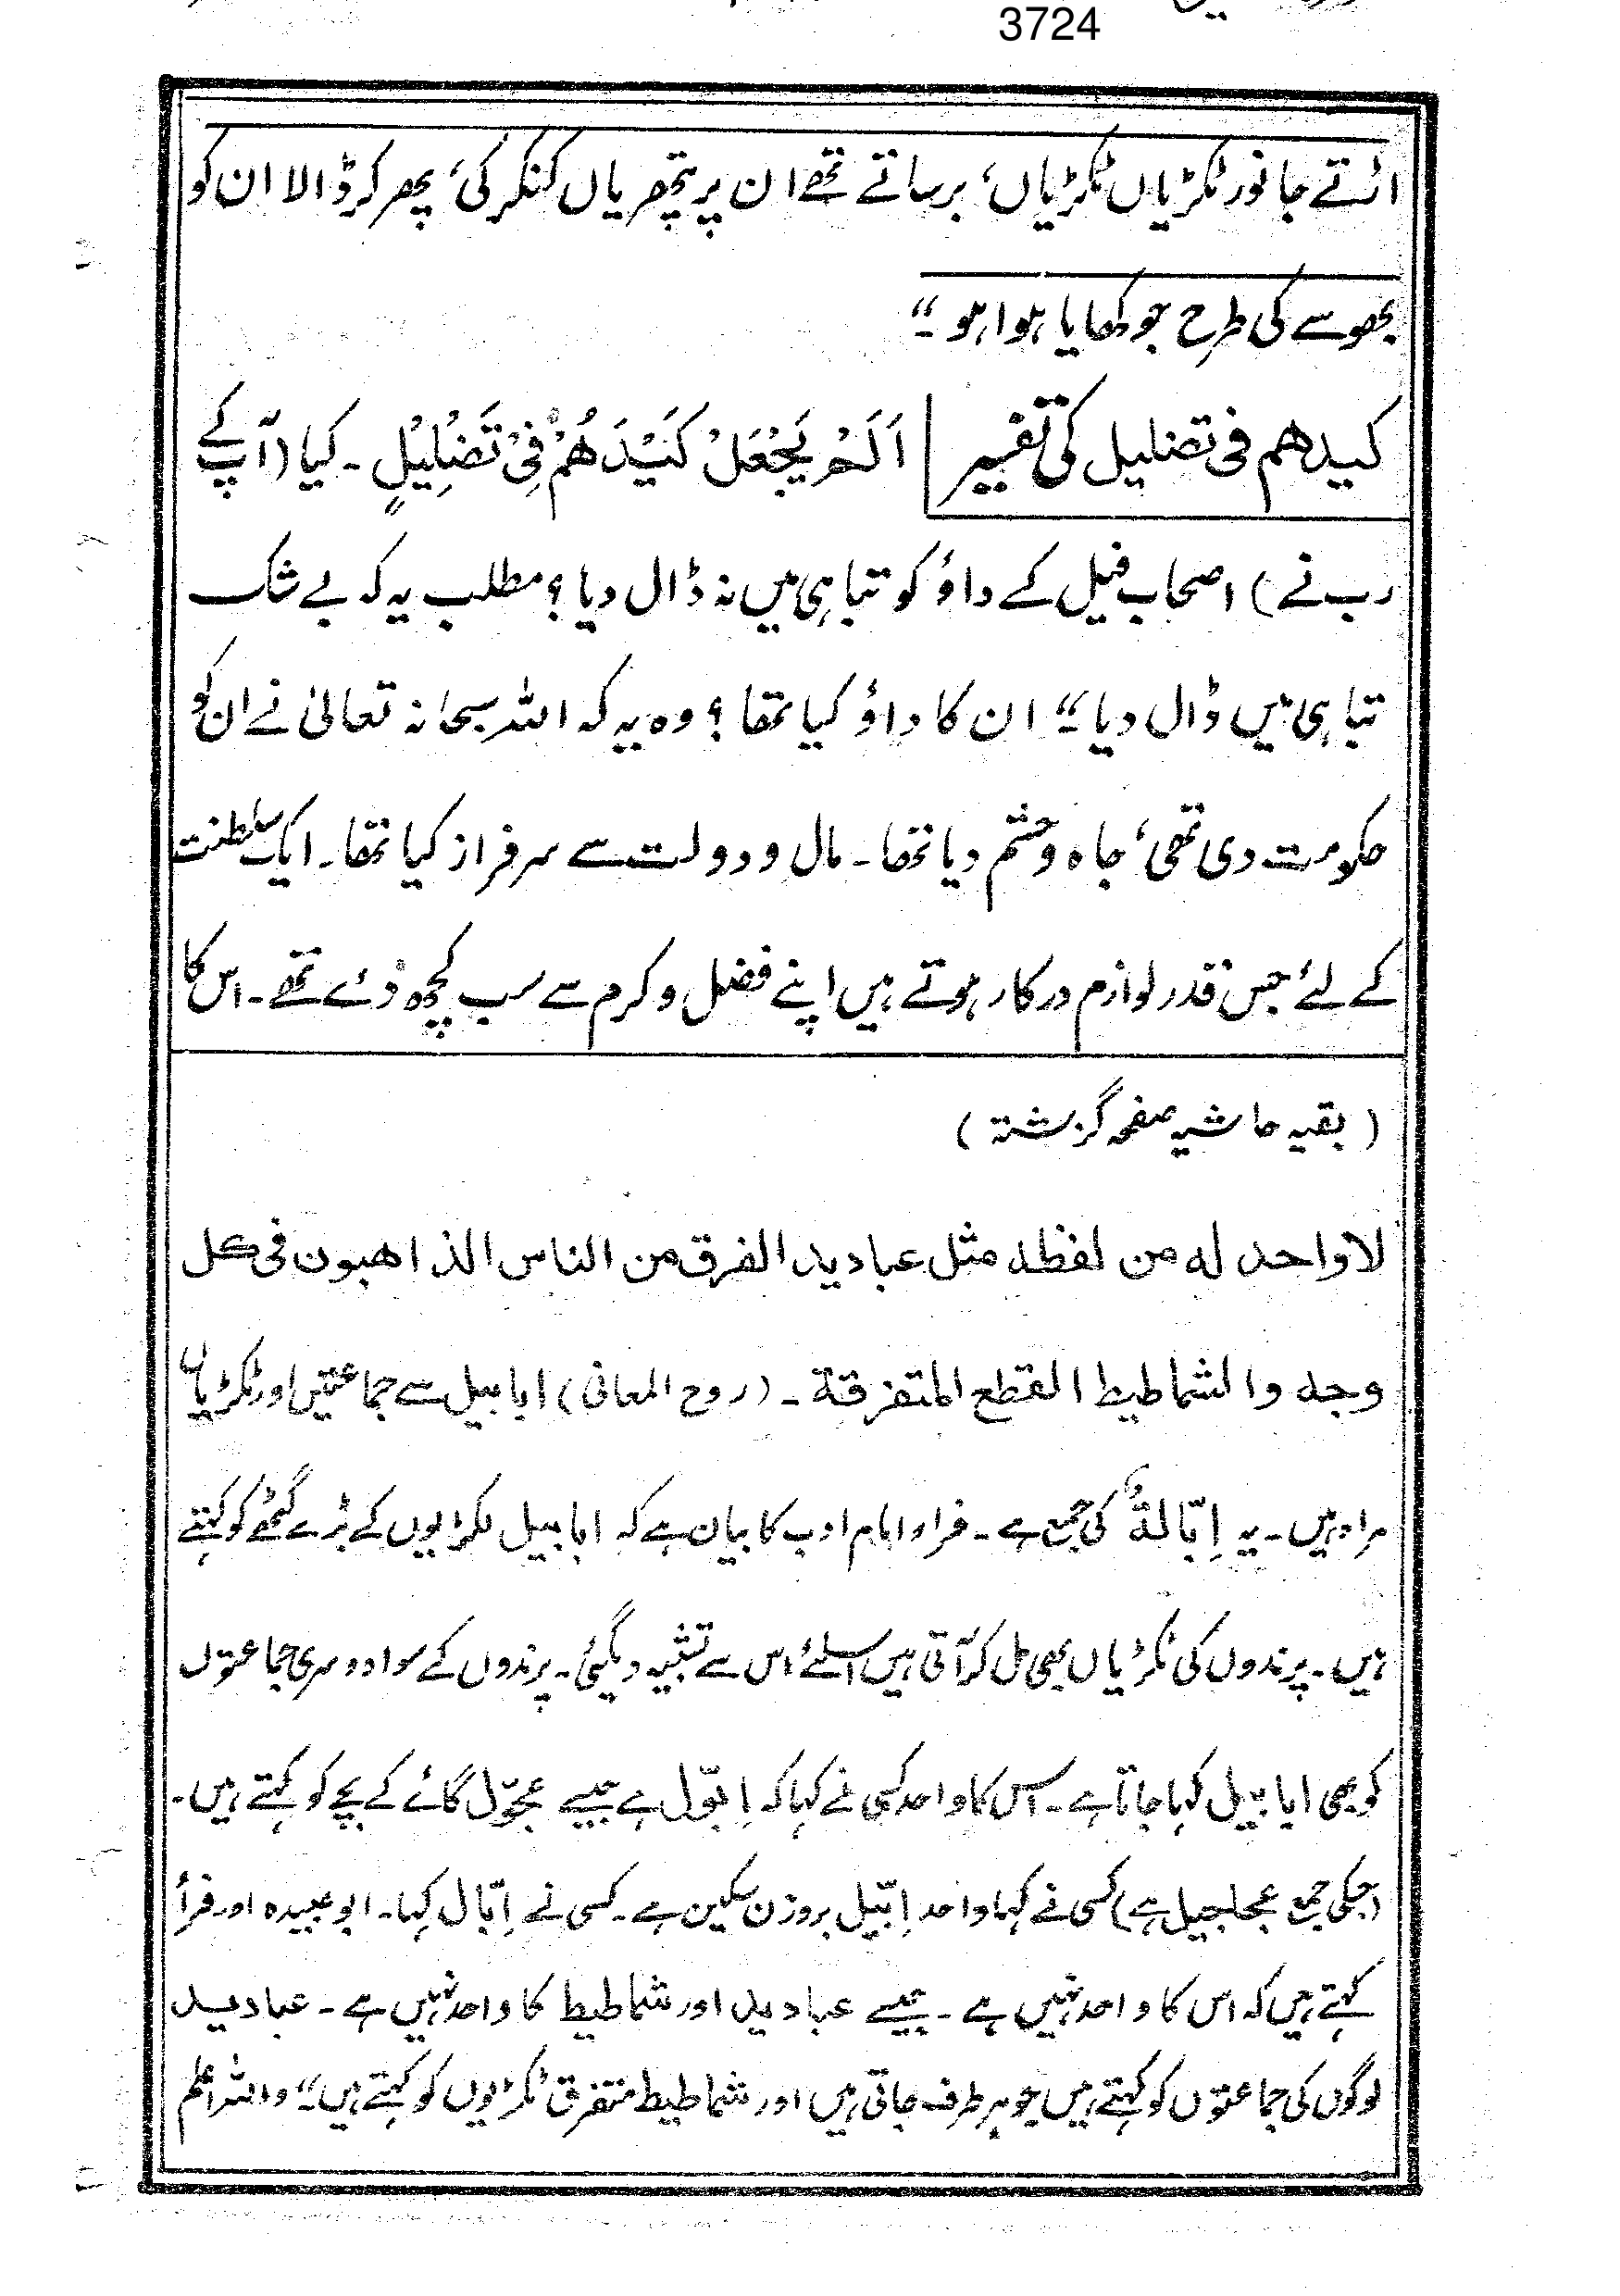 3724
اڑتے جانور ٹکڑیاں ٹکڑیاں، برساتے تھے ان پر پتھریاں کنکر کی، پھر کر ڈالا ان کو
بھوسے کی طرح جو کھایا ہوا ہو۔"
کیدھم فی تضلیل کی تفسیر | اَلَمْ یَجْعَلْ کَیْدَھُمْ فِیْ تَضْلِیْلٍ ۔ کیا (آپ کے
رب نے) اصحاب فیل کے داؤ کو تباہی میں نہ ڈال دیا؟ مطلب یہ کہ بے شک
تباہی میں ڈال دیا۔" ان کا داؤ کیا تھا؟ وہ یہ کہ اللہ سبحانہ تعالیٰ نے ان کو
حکومت دی تھی، جاہ و حشم دیا تھا۔ مال و دولت سے سرفراز کیا تھا۔ ایک سلطنت
کے لئے جس قدر لوازم درکار ہوتے ہیں اپنے فضل و کرم سے سب کچھ دئے تھے۔ اس کا
(بقیہ حاشیہ صفحہ گزشتہ)
لا واحد له من لفظه مثل عبادید الفرق من الناس الذاھبون فی کل
وجه والشماطیط القطع المتفرقة ۔ (روح المعانی) ابابیل سے جماعتیں اور ٹکڑیاں
مراد ہیں۔ یہ اِبّالةٌ کی جمع ہے۔ فراء امام ادب کا بیان ہے کہ ابابیل لکڑیوں کے بڑے گٹھے کو کہتے
ہیں۔ پرندوں کی ٹکڑیاں بھی مل کر آتی ہیں اسلئے اس سے تشبیہ دیگئی۔ پرندوں کے سوا دوسری جماعتوں
کو بھی ابابیل کہا جاتا ہے۔ اس کا واحد کسی نے کہا کہ اِبّول ہے جیسے عجّول گائے کے بچے کو کہتے ہیں۔
(جسکی جمع عجاجیل ہے) کسی نے کہا واحد اِبّیل بروزن سکین ہے۔ کسی نے اِبّال کہا۔ ابو عبیدہ اور فرأ
کہتے ہیں کہ اس کا واحد نہیں ہے۔ جیسے عبادید اور شماطیط کا واحد نہیں ہے۔ عبادید
لوگوں کی جماعتوں کو کہتے ہیں جو ہر طرف جاتی ہیں اور شماطیط متفرق ٹکڑیوں کو کہتے ہیں۔" واللہ اعلم